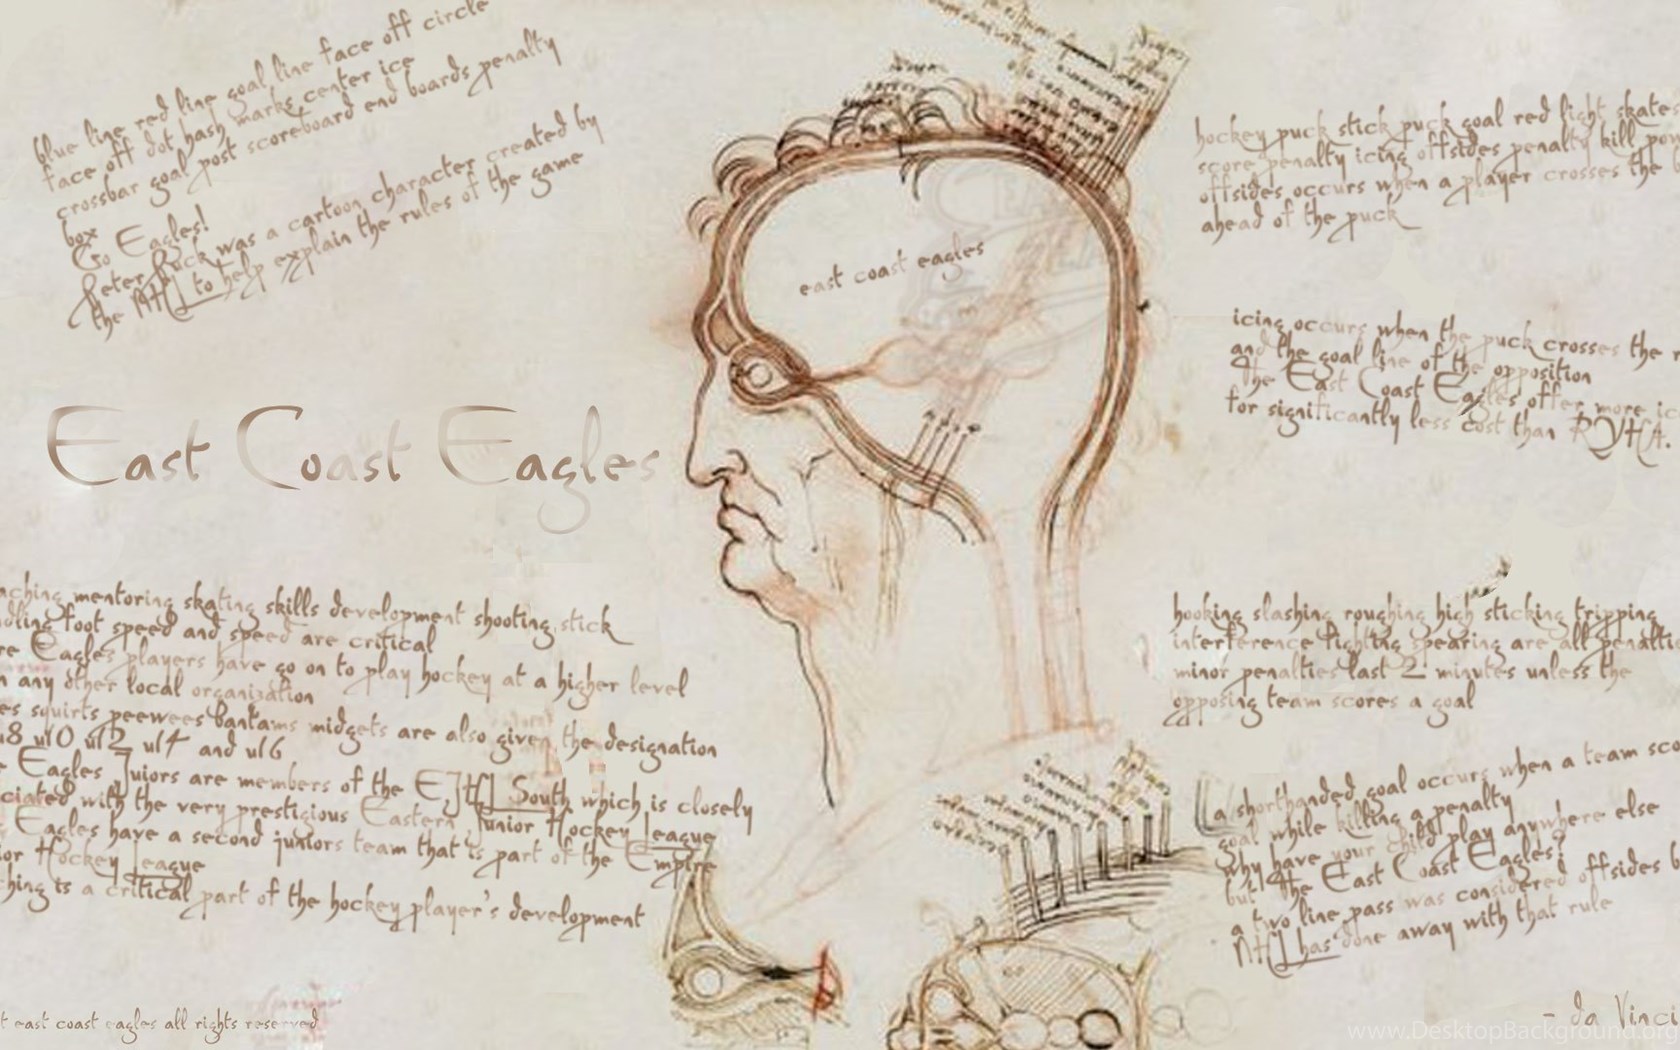 blue line red line goal line face off circle
face off dot hash marks center ice
crossbar goal post scoreboard end boards penalty
box
Go Eagles!
Peter Puck was a cartoon character created by
the NHL to help explain the rules of the game
east coast eagles
East Coast Eagles
hockey puck stick puck goal red light skates
score penalty icing offsides penalty kill pow
offsides occurs when a player crosses the b
ahead of the puck
icing occurs when the puck crosses the r
and the goal line of the opposition
The East Coast Eagles offer more ic
for significantly less cost than RYHA.
aching mentoring skating skills development shooting stick
dling foot speed and speed are critical
re Eagles players have go on to play hockey at a higher level
n any other local organization
es squirts peewees bantams midgets are also given the designation
u8 u10 u12 u14 and u16
e Eagles Juiors are members of the EJHL South which is closely
ciated with the very prestigious Eastern Junior Hockey League
Eagles have a second juniors team that is part of the Empire
ior Hockey League
ching is a critical part of the hockey player's development
hooking slashing roughing high sticking tripping
interference fighting spearing are all penaltie
minor penalties last 2 minutes unless the
opposing team scores a goal
a shorthanded goal occurs when a team sco
goal while killing a penalty
why have your child play anywhere else
but The East Coast Eagles?
a two line pass was considered offsides b
NHL has done away with that rule
t east coast eagles all rights reserved
- da Vinci
www.DesktopBackground.org